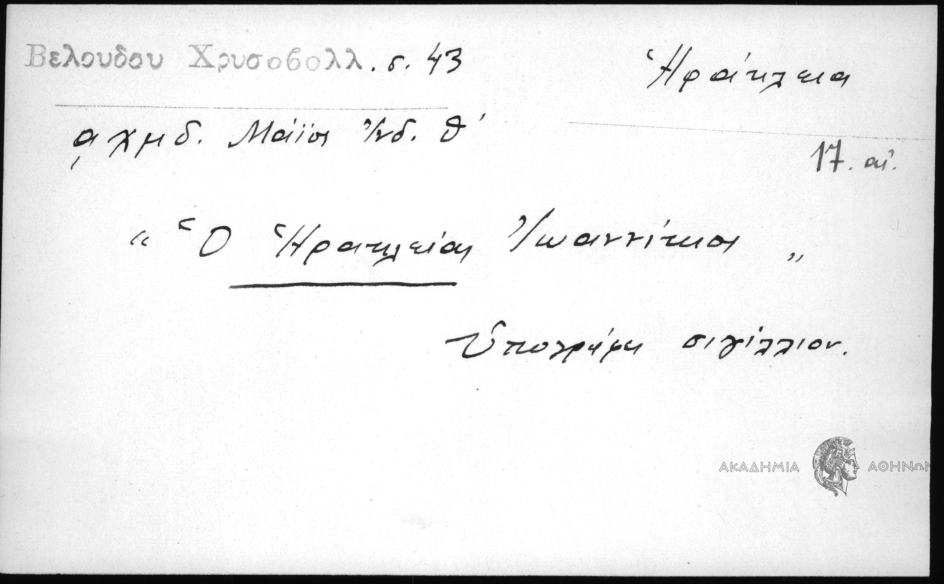 Βελουδου Χρυσοβολλ. σ. 43
Ἡράκλεια
͵αχμδ. Μάϊος Ἰνδ. θ'
17. αἰ.
„ Ὁ Ἡρακλείας Ἰωαννίκιος „
ὑπογράφει σιγίλλιον.
ΑΚΑΔΗΜΙΑ ΑΘΗΝΩΝ